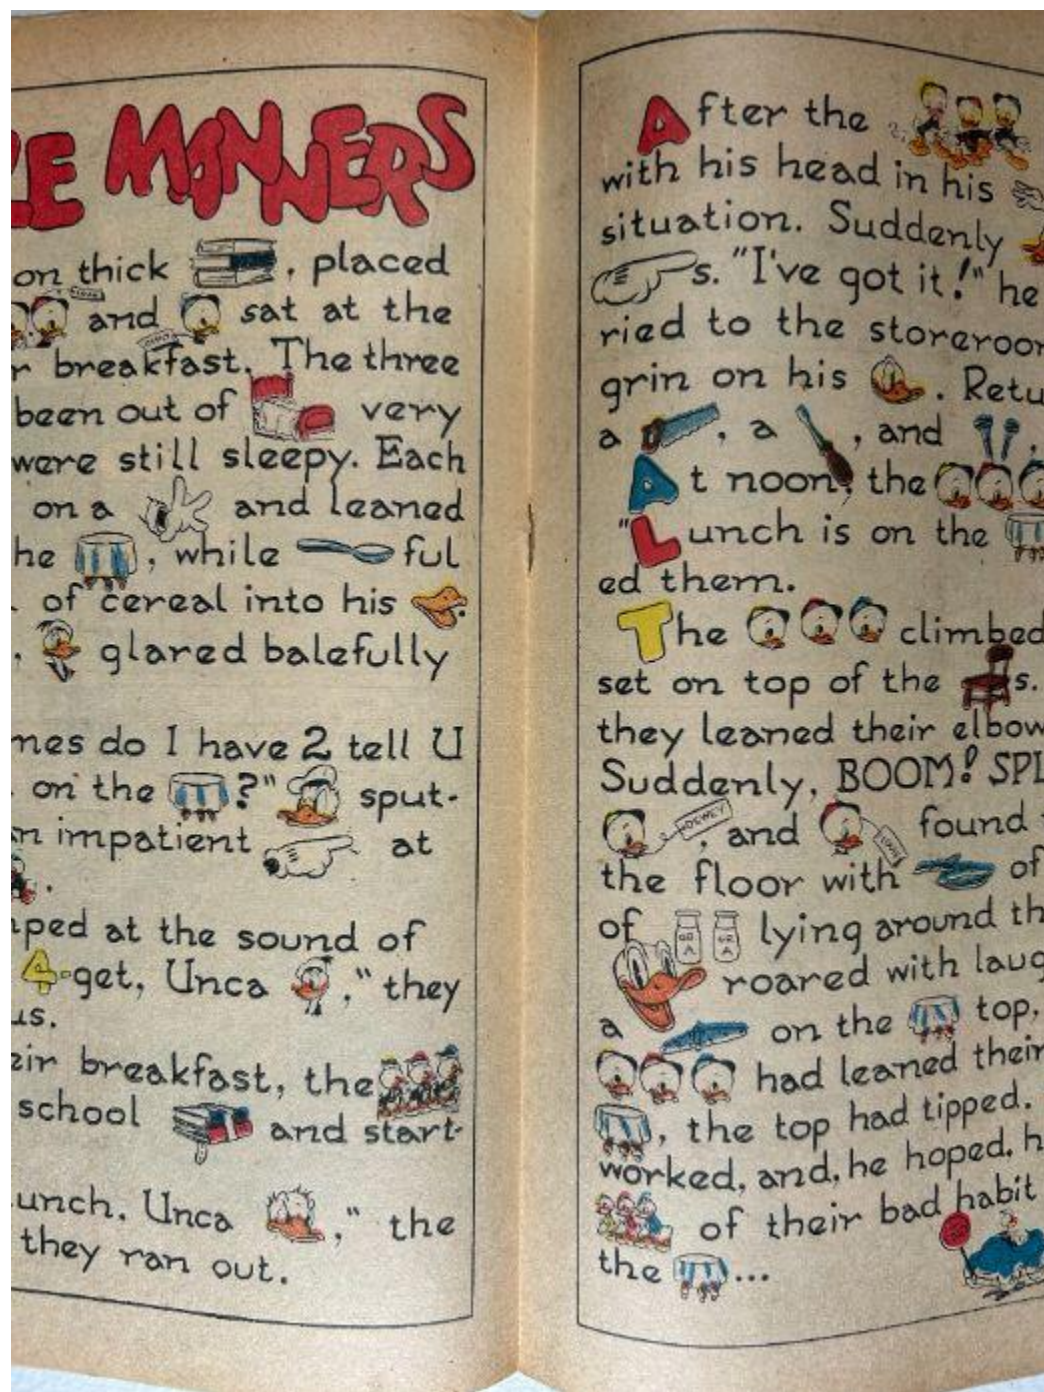 LE MANNERS
on thick , placed
and sat at the
r breakfast. The three
been out of very
were still sleepy. Each
on a and leaned
he , while ful
of cereal into his .
, glared balefully
mes do I have 2 tell U
on the ?" sput-
n impatient at
.
ped at the sound of
4-get, Unca ," they
us.
eir breakfast, the
school and start-
unch, Unca ," the
they ran out.
After the
with his head in his
situation. Suddenly
s. "I've got it!" he
ried to the storeroom
grin on his . Retu
a , a , and .
At noon, the
"Lunch is on the
ed them.
The climbed
set on top of the s.
they leaned their elbow
Suddenly, BOOM! SPL
DEWEY , and LOUIE found
the floor with of
of GR A GR A lying around th
roared with laug
a on the top,
had leaned their
, the top had tipped.
worked, and, he hoped, h
of their bad habit
the ...